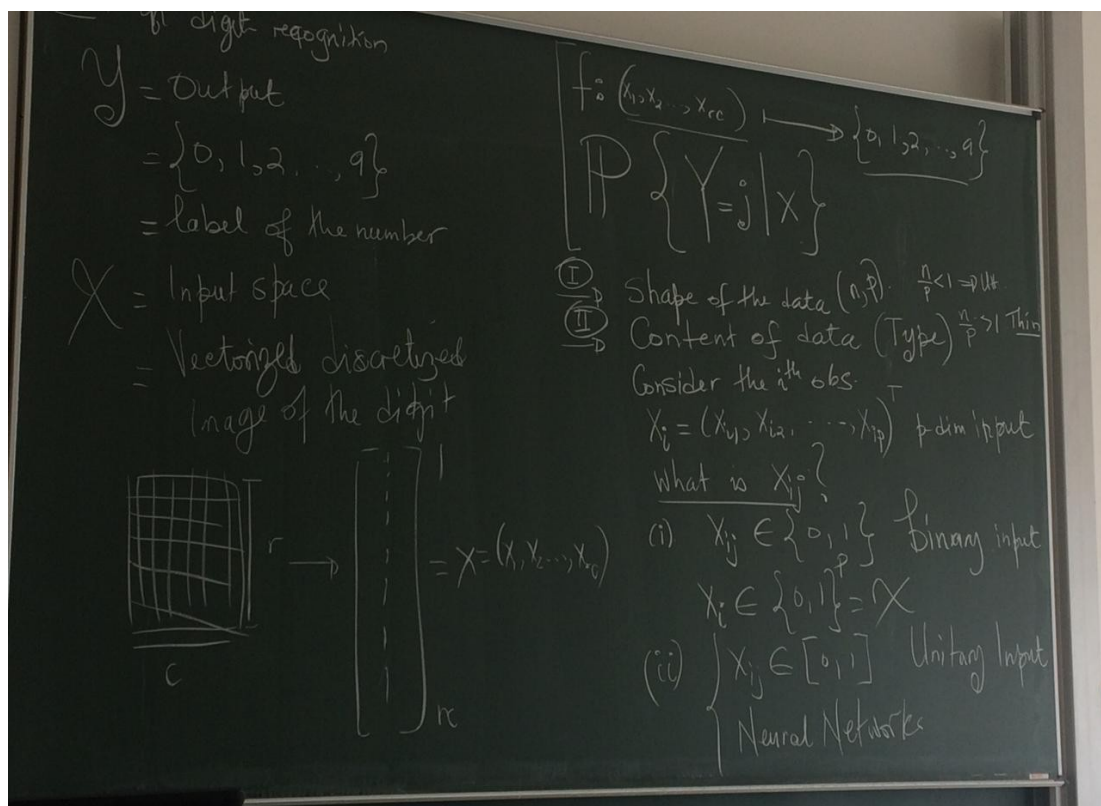 digit recognition
Y = Output
= {0, 1, 2, .., 9}
= label of the number
X = Input space
= Vectorized discretized
Image of the digit
r
c
→
1
rc
= X = (X₁, X₂ ..., X_rc)
f: (X₁, X₂ ..., X_rc) ⟼ {0, 1, 2, .., 9}
ℙ {Y = j | X}
I Shape of the data (n, p). n/p < 1 ⇒
II Content of data (Type) n/p > 1 Thin
Consider the iᵗʰ obs.
X_i = (X_i1, X_i2, ..., X_ip)ᵀ p-dim input
What is X_ij?
(i) X_ij ∈ {0, 1} Binary input
X_i ∈ {0, 1}ᵖ = X
(ii) X_ij ∈ [0, 1] Unitary Input
Neural Networks